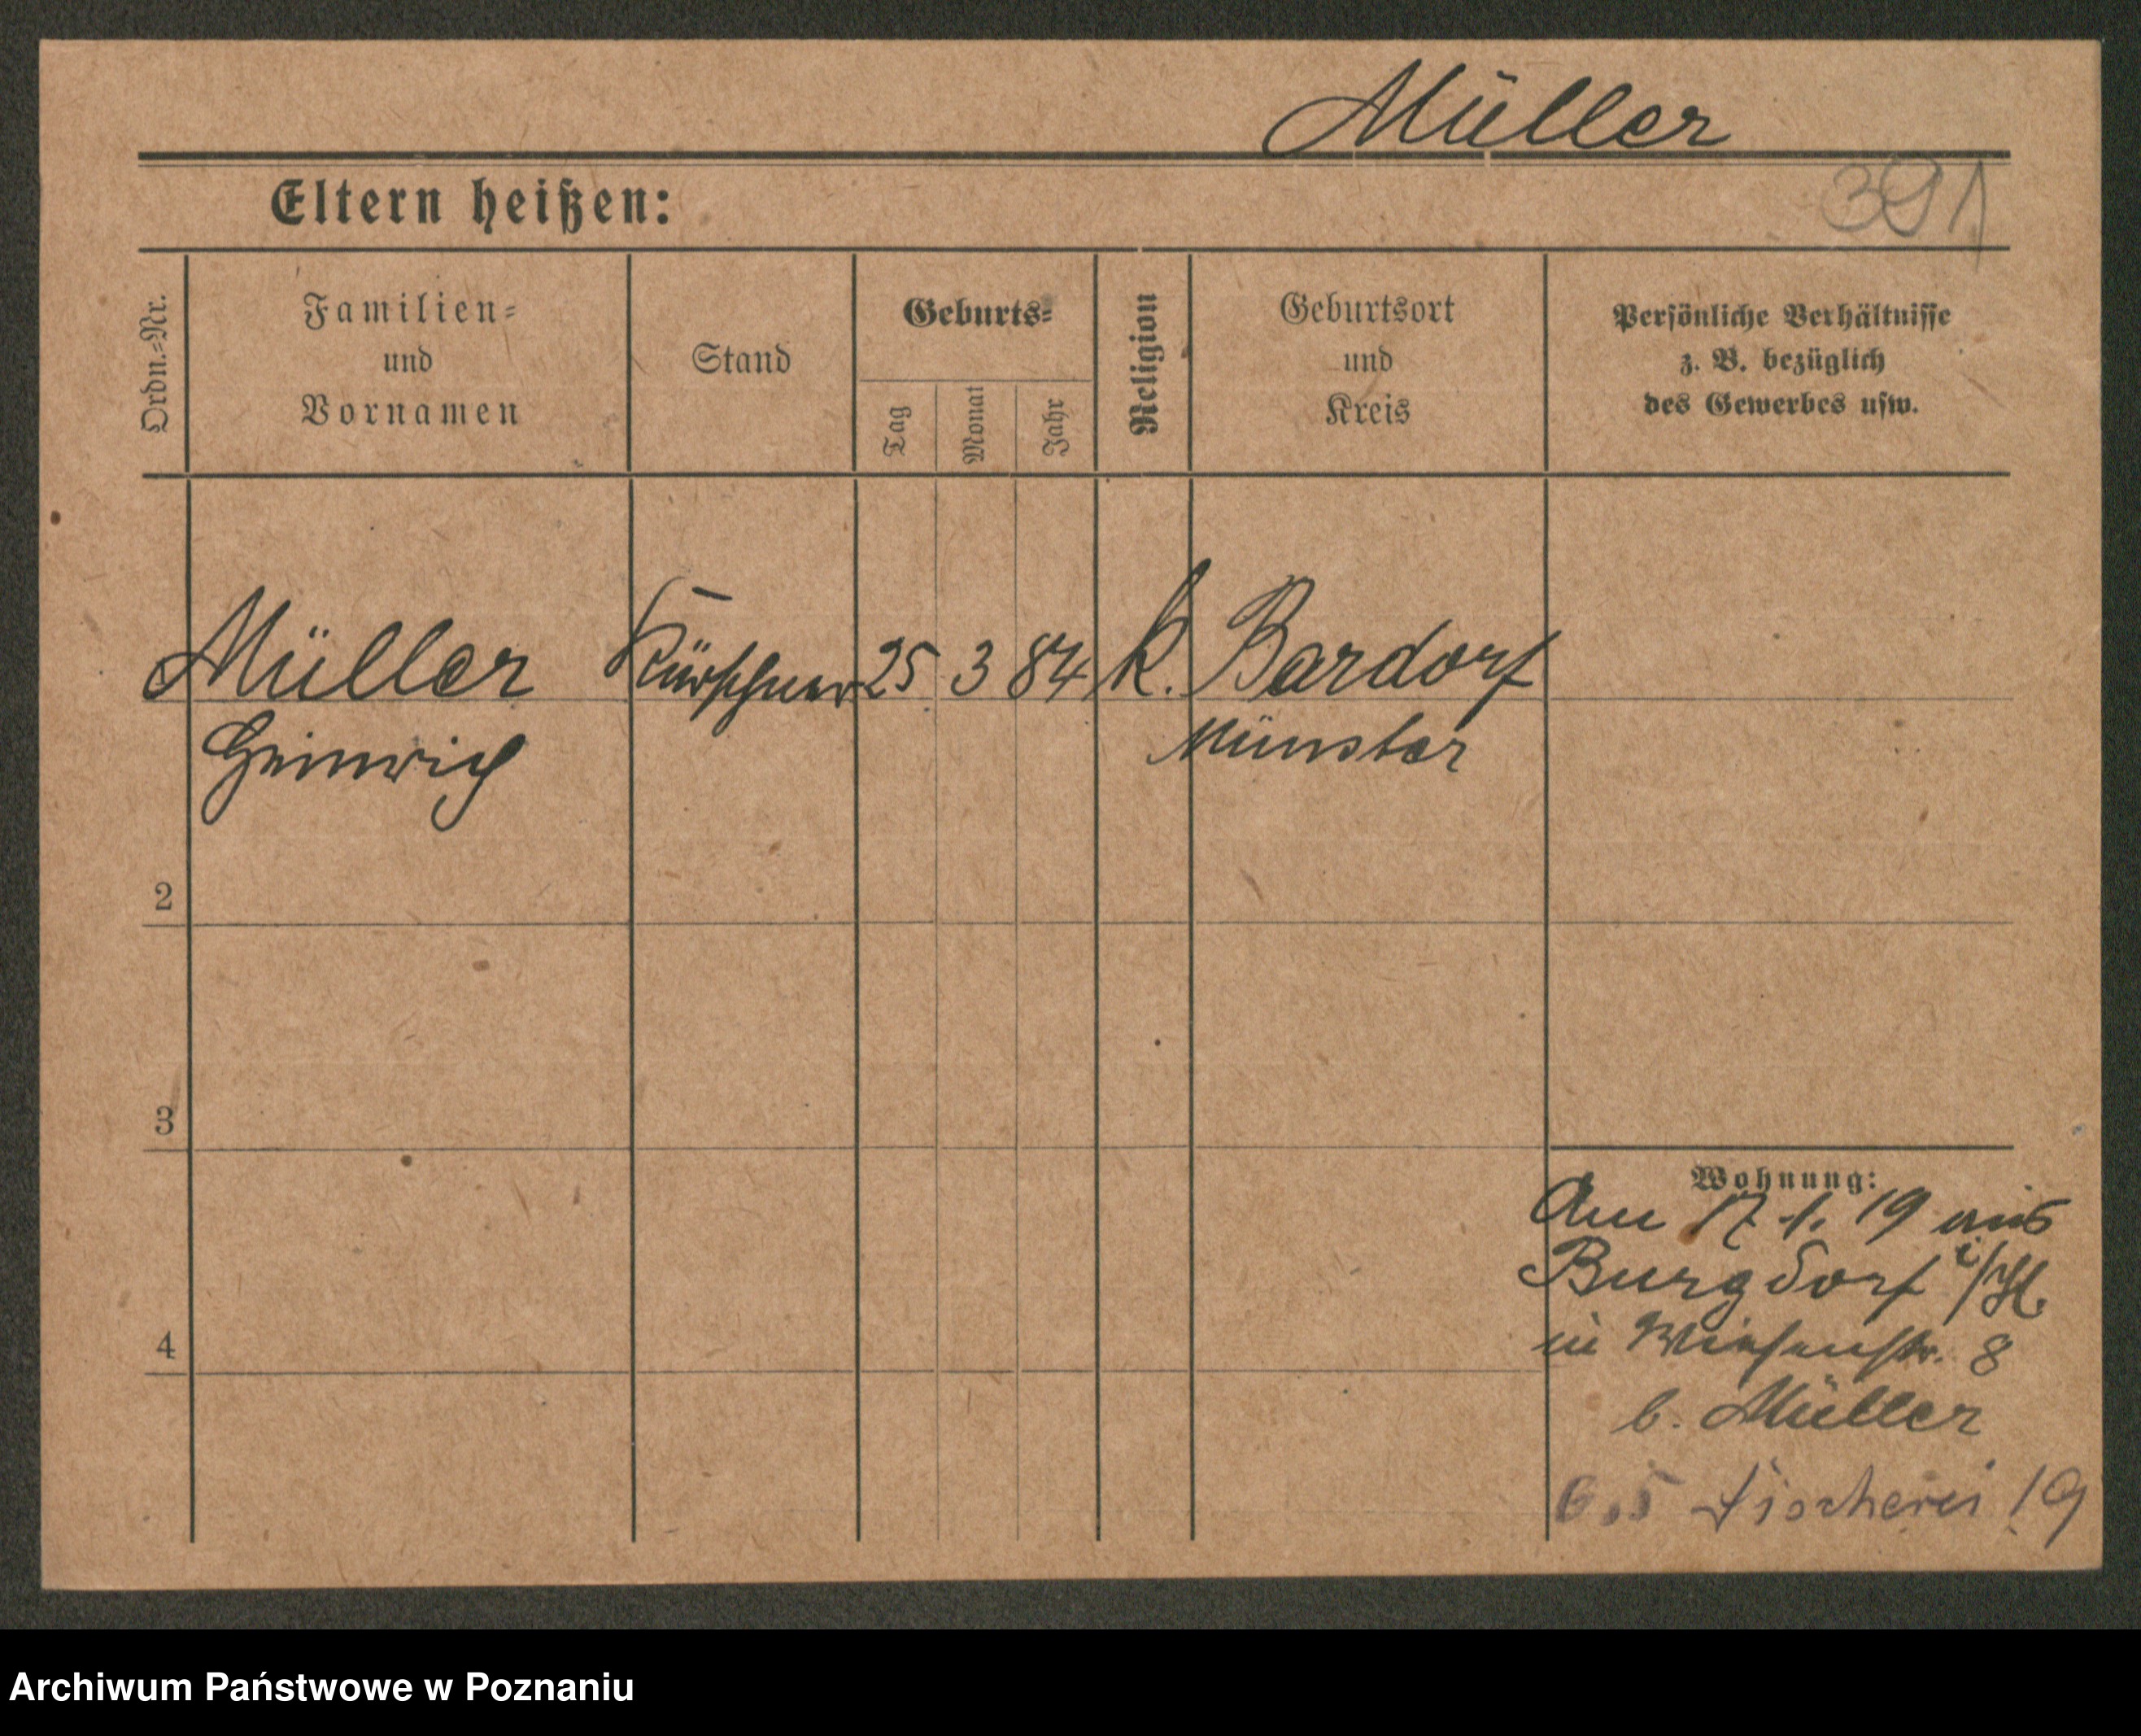 Müller
391
Eltern heißen:
Ordn.-Nr.
Familien-
und
Vornamen
Stand
Geburts-
Tag
Monat
Jahr
Religion
Geburtsort
und
Kreis
Persönliche Verhältnisse
z. B. bezüglich
des Gewerbes usw.
Müller Kürschner 25 3 84 k. Bardorf
Heinrich Münster
2
3
4
Wohnung:
Am 17.1.19 aus
Burgdorf i/H.
in Wiesenstr. 8
b. Müller
6.5 Fischerei 19
Archiwum Państwowe w Poznaniu